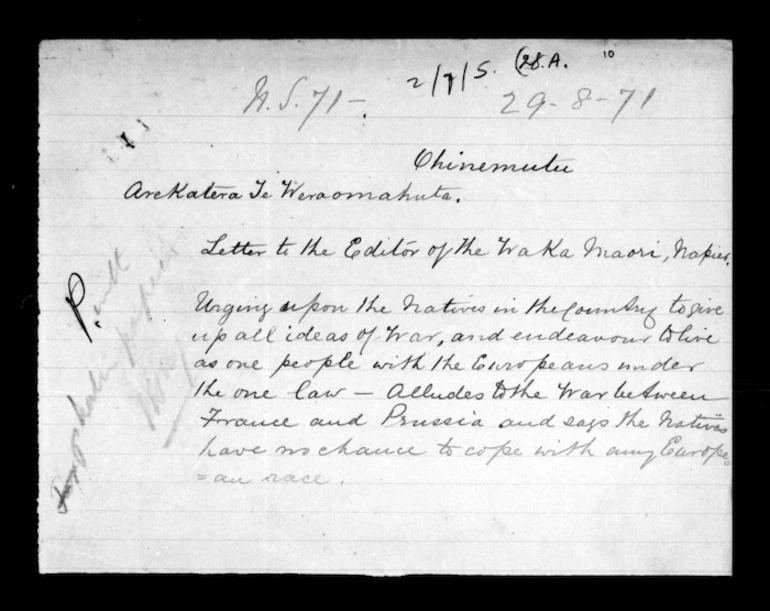 2/7/5. (28.A. 10
N.S. 71-. 29-8-71
Ohinemutu
Arekatera Te Weraomahuta.
Letter to the Editor of the Waka Maori, Napier.
Urging upon the Natives in the Country to give
up all ideas of War, and endeavour to live
as one people with the Europeans under
the one law — Alludes to the War between
France and Prussia and says the Natives
have no chance to cope with any Europe=
=an race.
P.